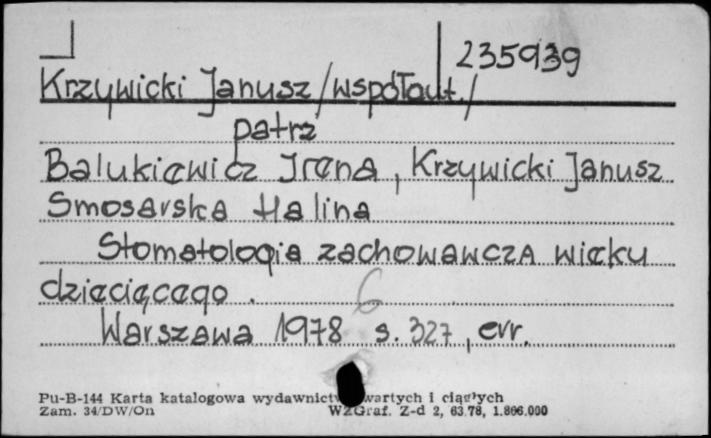 235939
Krzywicki Janusz /współaut./
patrz
Balukiewicz Irena, Krzywicki Janusz
Smosarska Halina
Stomatologia zachowawcza wieku
dziecięcego.
6
Warszawa 1978 s. 327, err.
Pu-B-144 Karta katalogowa wydawnictw zwartych i ciągłych
Zam. 34/DW/On WZGraf. Z-d 2, 63.78, 1.866.000